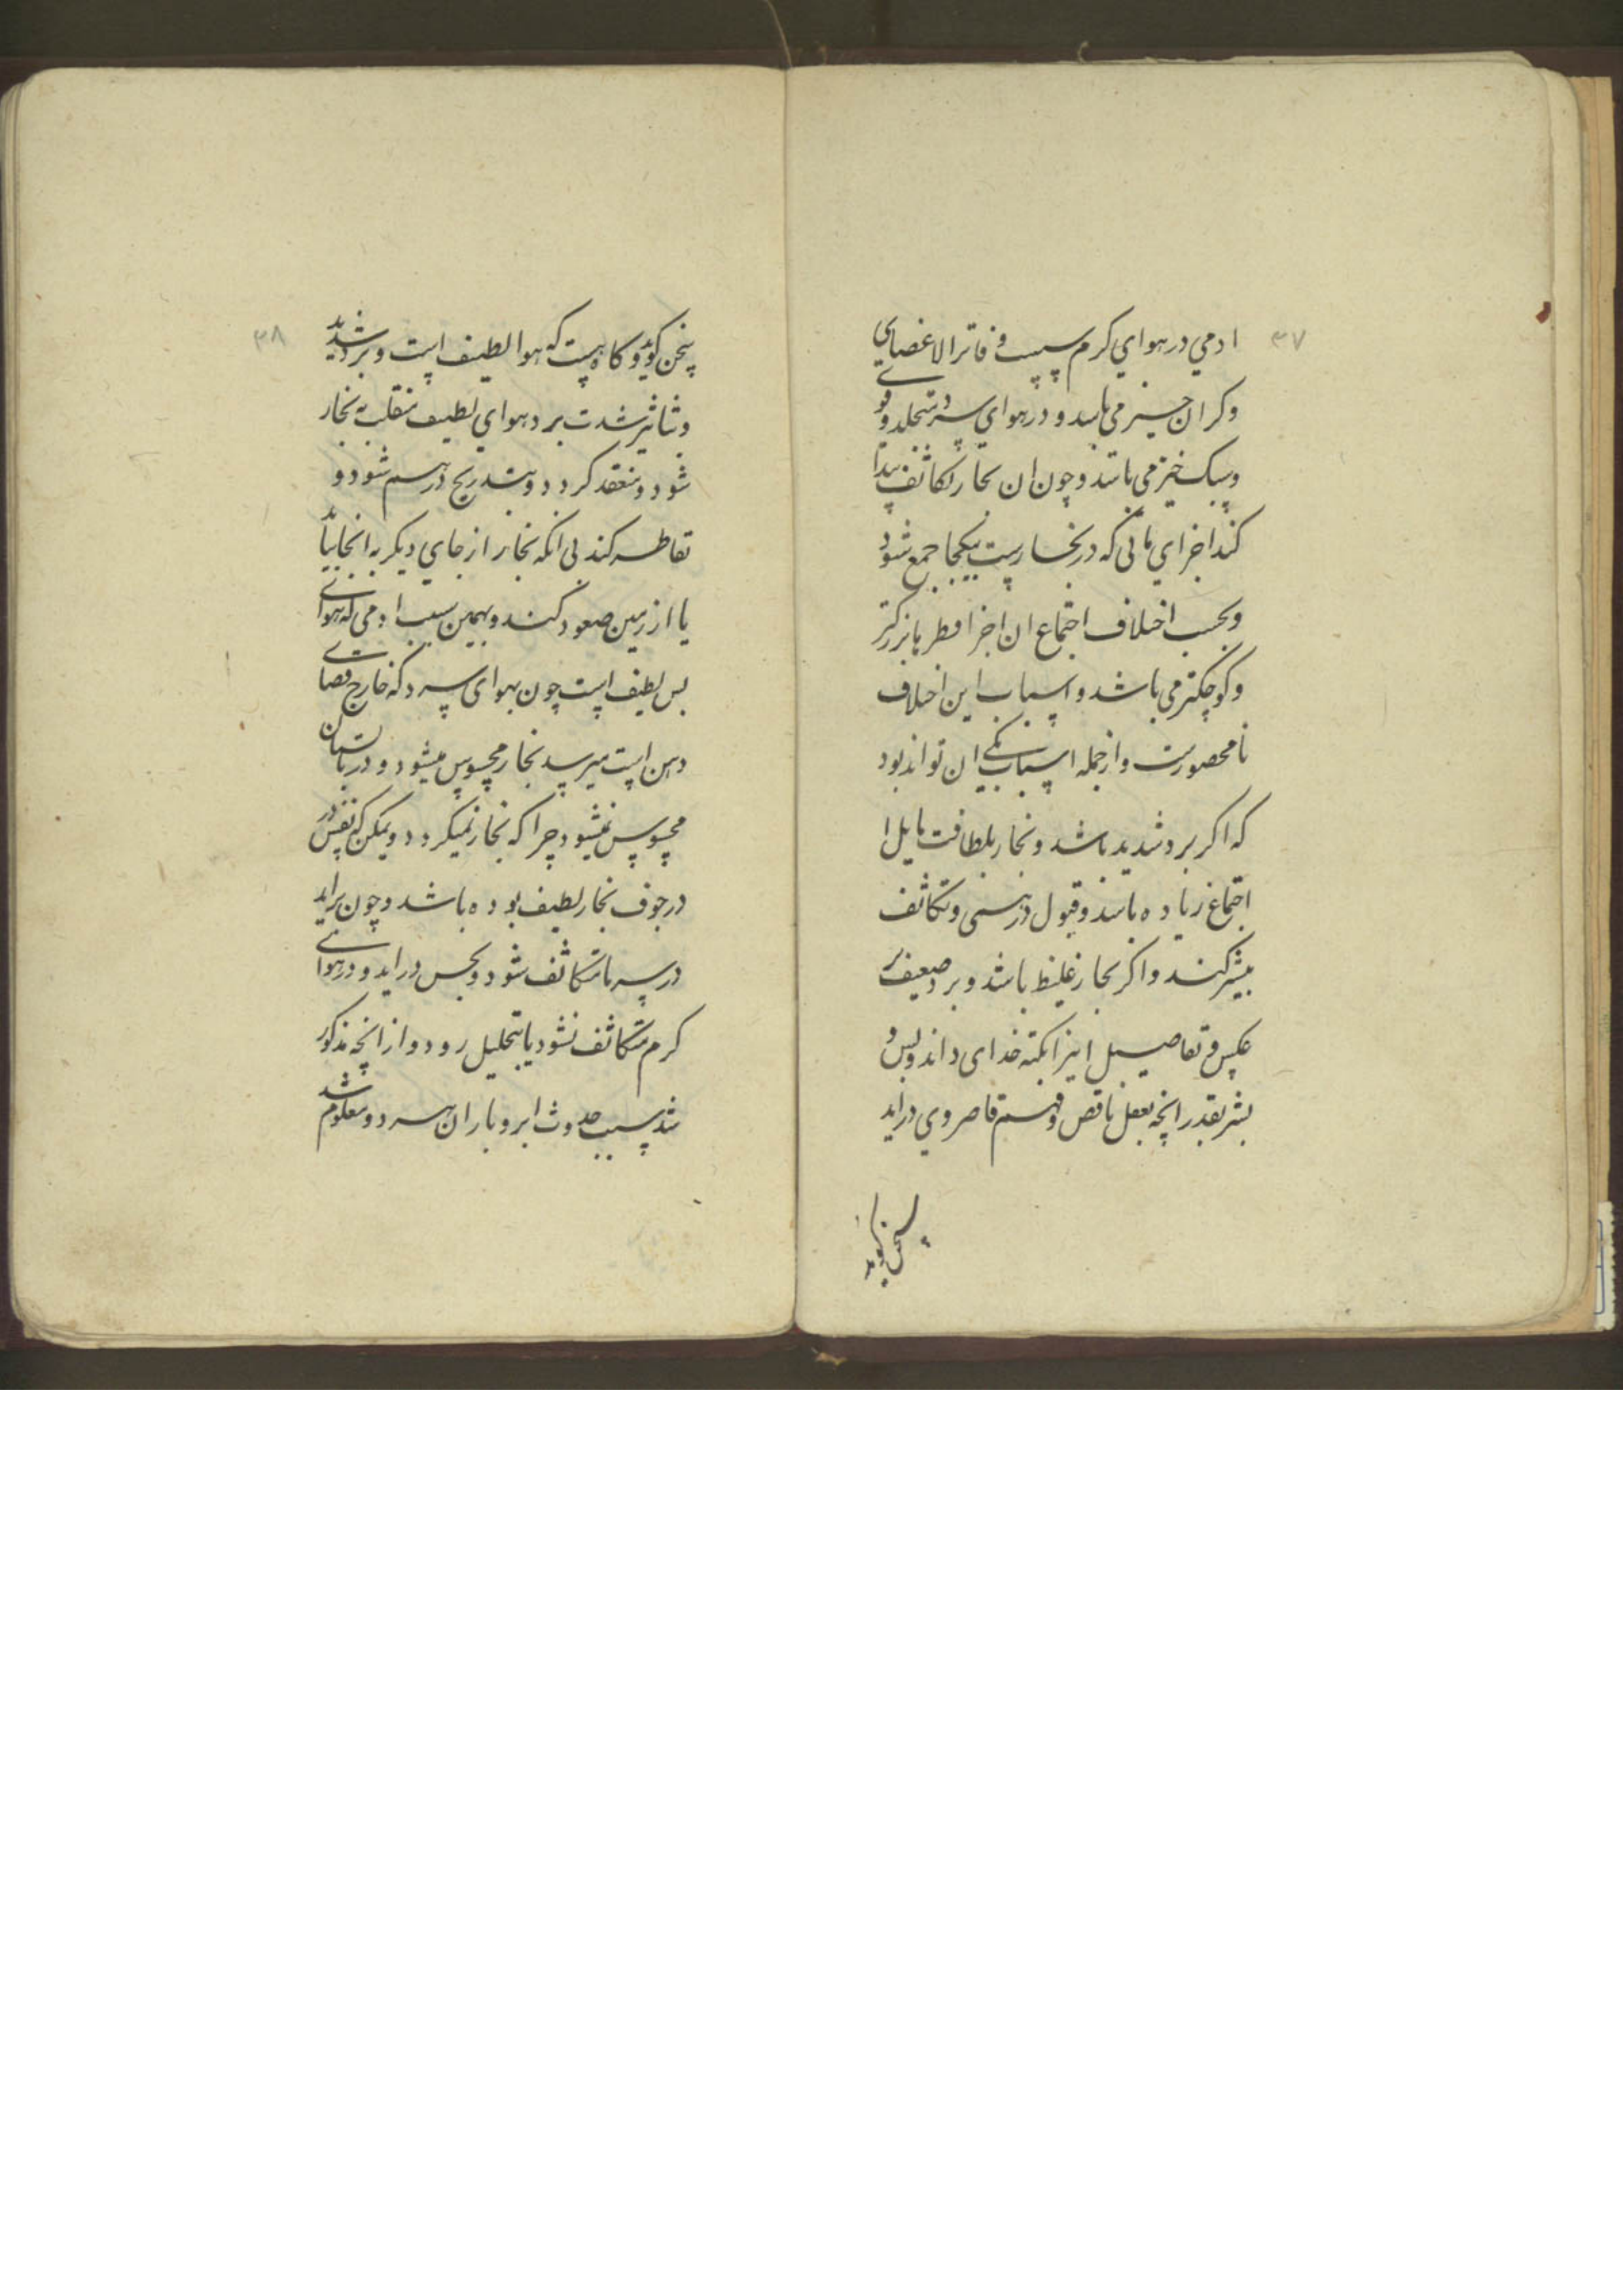 ۳۷
ادمي در هواي كرم سست و فاتر الاعضاي
و كران خيز مي باشد و در هواي سرد متجلد و قوي
و سبك خيز مي باشد و چون ان بخار تكاثف پيدا
كند اجزاي مائي كه در بخارست بيكجا جمع شود
و بحسب اختلاف اجتماع ان اجزا قطرها بزركتر
و كوچكتر مي باشد و اسباب اين اختلاف
نامحصورست و از جمله اسباب يكي ان تواند بود
كه اكر برد شديد باشد و بخار بلطافت مايل
اجتماع زياده باشد و قبول درهمي و تكاثف
بيشتر كند و اكر بخار غليظ باشد و برد ضعيف بر
عكس و تفاصيل اينرا بكنه خداي داند و بس و
بشر بقدر انچه بعقل ناقص و فهم قاصر وي درايد
سخن كويد
۳۸
سخن كويد و كاه هست كه هوا لطيف است و برد شديد
و بتاثير شدت برد هواي لطيف منقلب به بخار
شود و منعقد كردد و بتدريج درهم شود و
تقاطر كند بي انكه بخار از جاي ديكر به انجا بيايد
يا از زمين صعود كند و بهمين سبب ادمي كه هواي
بس لطيف است چون بهواي سرد كه خارج فضاي
دهن است ميرسد بخار محسوس ميشود و در تابستان
محسوس نميشود چرا كه بخار نميكردد و يمكن كه نفس در
در جوف بخار لطيف بوده باشد و چون برايد
در سرما متكاثف شود و بحس درايد و در هواي
كرم متكاثف نشود يا بتحليل رود و از انچه مذكور
شد سبب حدوث ابر و باران هر دو معلوم شد